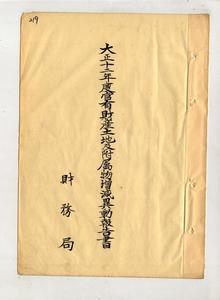 219
大正十二年度官有財産土地及附属物増減異動報告書
財務局